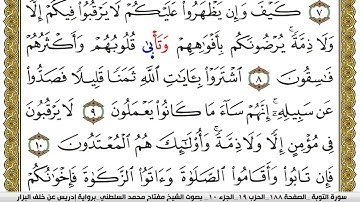 ٧ كَيْفَ وَإِن يَظْهَرُوا۟ عَلَيْكُمْ لَا يَرْقُبُوا۟ فِيكُمْ إِلًّا
وَلَا ذِمَّةً ۚ يُرْضُونَكُم بِأَفْوَٰهِهِمْ وَتَأْبَىٰ قُلُوبُهُمْ وَأَكْثَرُهُمْ
فَٰسِقُونَ ٨ ٱشْتَرَوْا۟ بِـَٔايَٰتِ ٱللَّهِ ثَمَنًا قَلِيلًا فَصَدُّوا۟
عَن سَبِيلِهِۦٓ ۚ إِنَّهُمْ سَآءَ مَا كَانُوا۟ يَعْمَلُونَ ٩ لَا يَرْقُبُونَ
فِى مُؤْمِنٍ إِلًّا وَلَا ذِمَّةً ۚ وَأُو۟لَٰٓئِكَ هُمُ ٱلْمُعْتَدُونَ ١٠
فَإِن تَابُوا۟ وَأَقَامُوا۟ ٱلصَّلَوٰةَ وَءَاتَوُا۟ ٱلزَّكَوٰةَ فَإِخْوَٰنُكُمْ
سورة التوبة _ الصفحة ١٨٨ _ الحزب ١٩ _ الجزء ١٠ _ بصوت الشيخ مفتاح محمد السلطني _ برواية إدريس عن خلف البزار